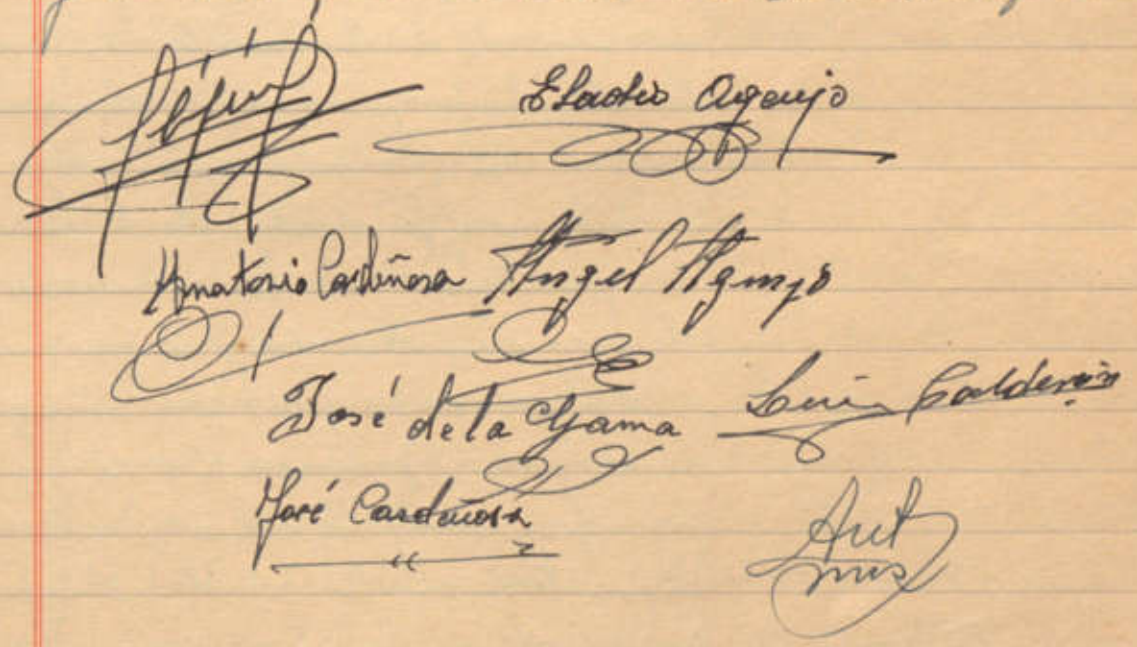 Eladio Agenjo
Anatonio Cardeñosa Ángel Agenjo
José de la Gama Luis Calderón
José Cardeñosa